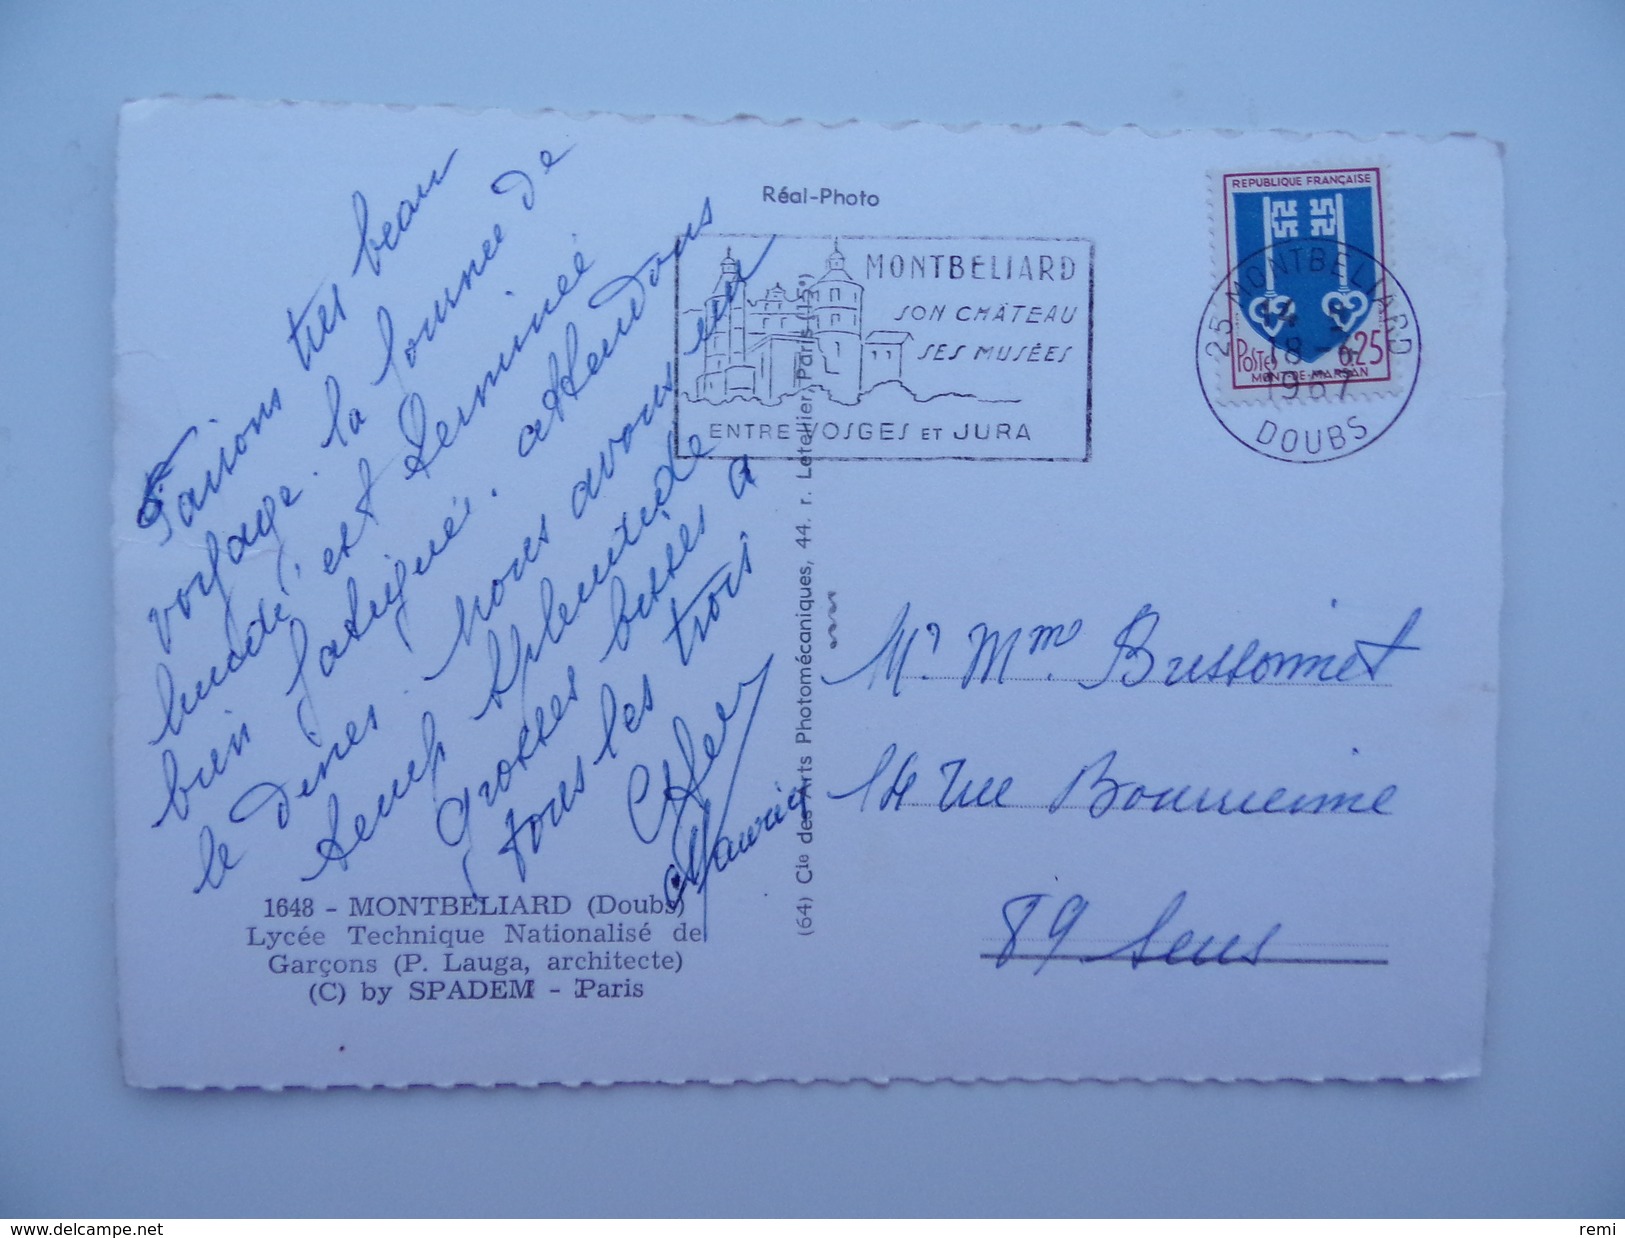 Faisons très beau
voyage. la Journée de
lundi, est terminée
bien fatigué. attendons
le diner. Nous avons eu
temps splendide
grosses bises a
tous les trois
Maurice
Réal-Photo
MONTBELIARD
SON CHÂTEAU
SES MUSÉES
ENTRE VOSGES ET JURA
REPUBLIQUE FRANÇAISE
POSTES 0,25
MONT-DE-MARSAN
25 MONTBELIARD
18
1967
DOUBS
(64) Cie des Arts Photomécaniques, 44. r. Letellier, Paris (15e)
Mr Mme Bussonnet
14 rue
89 Sens
1648 - MONTBELIARD (Doubs)
Lycée Technique Nationalisé de
Garçons (P. Lauga, architecte)
(C) by SPADEM - Paris
www.delcampe.net
remi